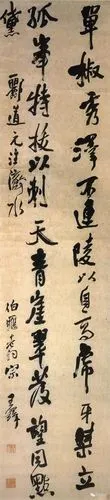 單椒秀澤不連陵以自高虎牙桀立
孤峯特拔以刺天青崖翠發望同點
黛 酈道元注濟水
伯 詞宗 王鐸